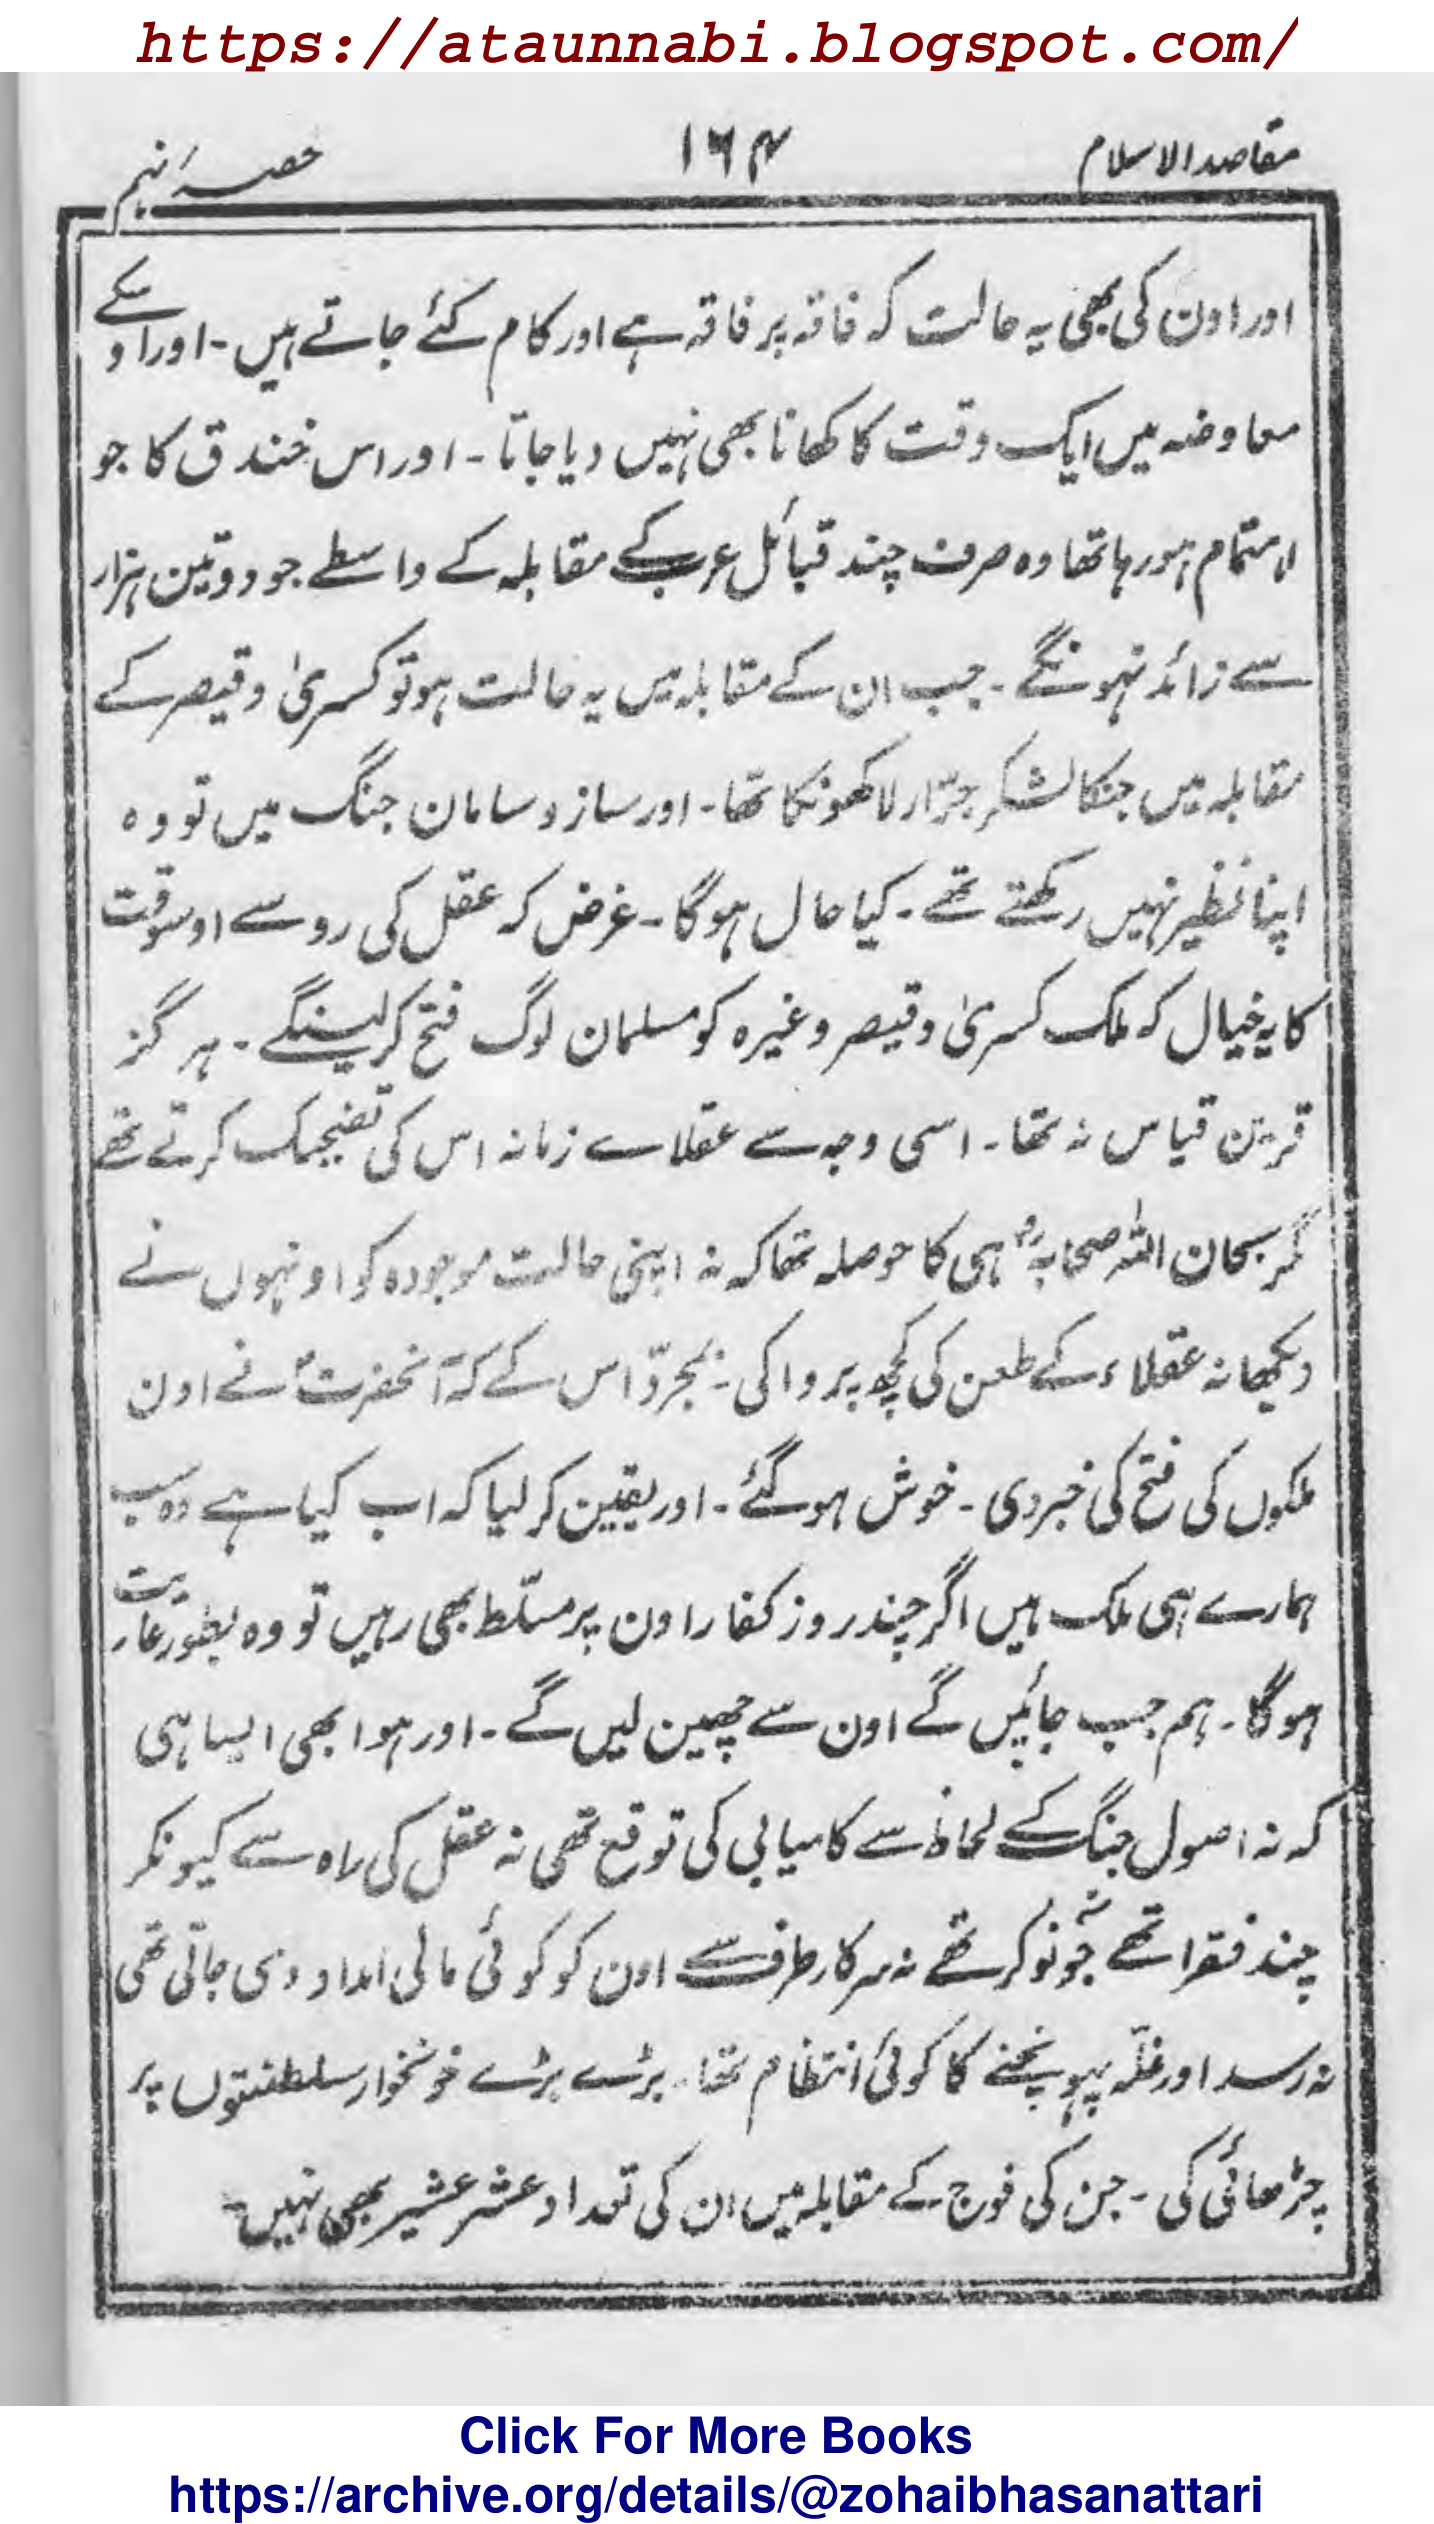 https://ataunnabi.blogspot.com/
مقاصد الاسلام ۱۶۴ حصہ نہم
اور اون کی بھی یہ حالت کہ فاقہ پر فاقہ ہے اور کام کئے جاتے ہیں ۔ اور اوسکے
معاوضہ میں ایک وقت کا کھانا بھی نہیں دیا جاتا ۔ اور اس خندق کا جو
اہتمام ہو رہا تھا وہ صرف چند قبائل عرب کے مقابلہ کے واسطے جو دو تین ہزار
سے زائد نہونگے ۔ جب ان کے مقابلہ میں یہ حالت ہو تو کسریٰ وقیصر کے
مقابلہ میں جنکا لشکر جرّار لاکھونکا تھا ۔ اور ساز و سامان جنگ میں تو وہ
اپنا نظیر نہیں رکھتے تھے ۔ کیا حال ہوگا ۔ غرض کہ عقل کی رو سے اوسوقت
کا یہ خیال کہ ملک کسریٰ وقیصر وغیرہ کو مسلمان لوگ فتح کرلینگے ۔ ہر گز
قرین قیاس نہ تھا ۔ اسی وجہ سے عقلاے زمانہ اس کی تضحیک کرتے تھے
مگر سبحان اللہ صحابہؓ ہی کا حوصلہ تھا کہ نہ اپنی حالت موجودہ کو اونہوں نے
دیکھا نہ عقلاء کے طعن کی کچھ پروا کی ۔ بمجرّد اس کے کہ آنحضرتؐ نے اون
ملکوں کی فتح کی خبر دی ۔ خوش ہوگئے ۔ اور یقین کر لیا کہ اب کیا ہے وہ سب
ہمارے ہی ملک ہیں اگر چند روز کفار اون پر مسلّط بھی رہیں تو وہ بطور عاریت
ہوگا ۔ ہم جب جائیں گے اون سے چھین لیں گے ۔ اور ہوا بھی ایسا ہی
کہ نہ اصول جنگ کے لحاظ سے کامیابی کی توقع تھی نہ عقل کی راہ سے کیونکر
چند فقرا تھے جو نہ نوکر تھے نہ سرکار طرف سے اون کو کوئی مالی امداد دی جاتی تھی
نہ رسد اور غلّہ پہونچنے کا کوئی انتظام تھا ۔ بڑے بڑے خونخوار سلطنتوں پر
چڑھائی کی ۔ جن کی فوج کے مقابلہ میں ان کی تعداد عشر عشیر بھی نہیں ۔
Click For More Books
https://archive.org/details/@zohaibhasanattari